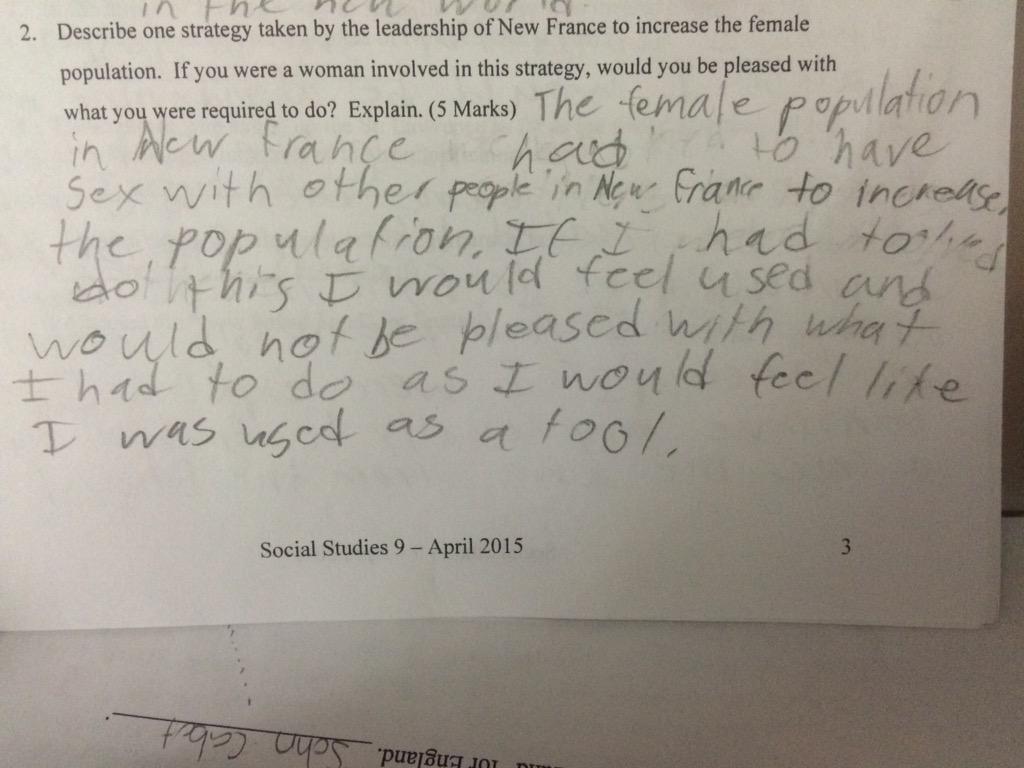 in the new world.
2. Describe one strategy taken by the leadership of New France to increase the female
population. If you were a woman involved in this strategy, would you be pleased with
what you were required to do? Explain. (5 Marks) The female population
in New France had to have
Sex with other people in New France to increase
the population. If I had to
do this I would feel used and
would not be pleased with what
I had to do as I would feel like
I was used as a tool.
Social Studies 9 – April 2015
3
for England. John Cabot